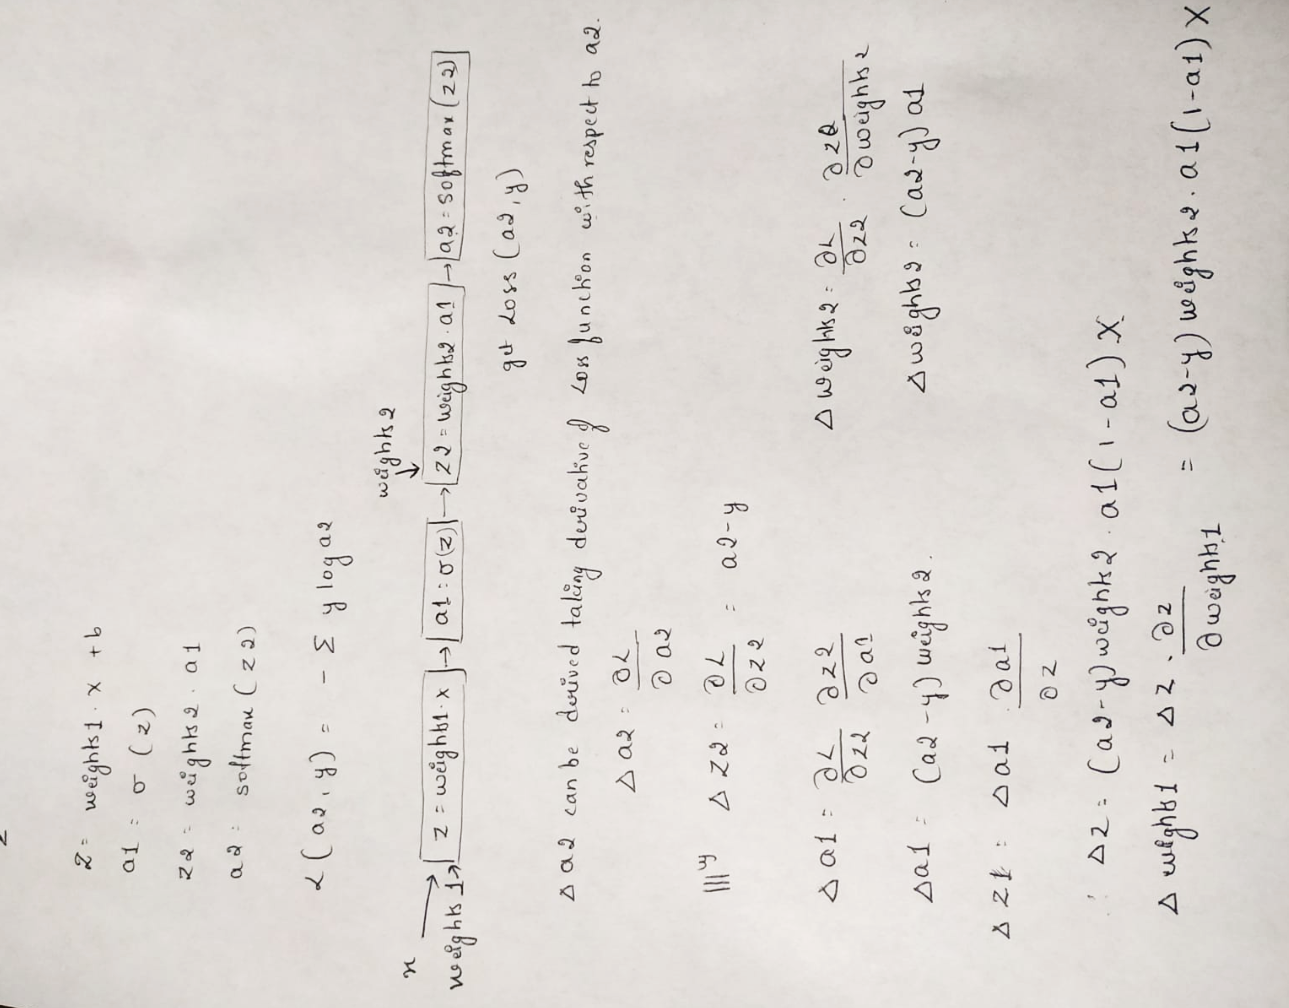 z = weights1 . x + b
a1 = σ (z)
z2 = weights2 . a1
a2 = softmax (z2)
L (a2, y) = - Σ y log a2
x weights2
weights 1 → z = weights1 . x → a1 = σ(z) → z2 = weights2 . a1 → a2 = softmax (z2)
get Loss (a2, y)
Δ a2 can be derived taking derivative of Loss function with respect to a2.
Δ a2 = ∂L / ∂a2
|||ly Δ z2 = ∂L / ∂z2 = a2-y
Δ a1 = ∂L / ∂z2 . ∂z2 / ∂a1 Δ weights2 = ∂L / ∂z2 . ∂z2 / ∂weights2
Δa1 = (a2-y) weights2. Δ weights2 = (a2-y) a1
Δ z1 = Δ a1 . ∂a1 / ∂z
∴ Δz = (a2-y) weights2 . a1 (1-a1) X
Δ weights1 = Δ z . ∂z / ∂weights1 = (a2-y) weights2 . a1 (1-a1) X